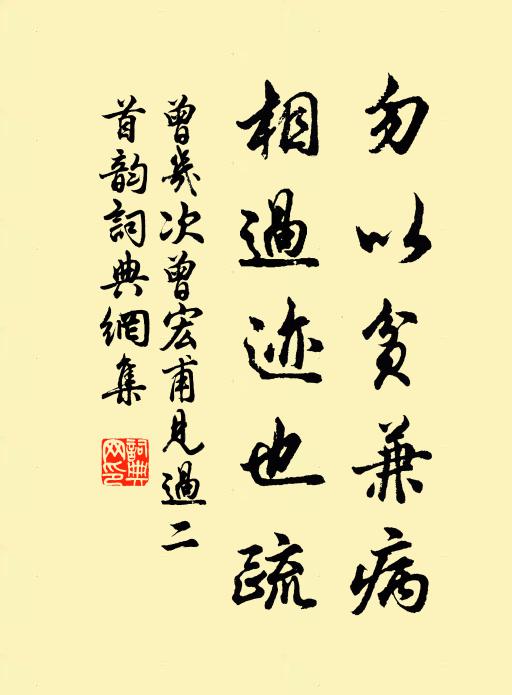 勿以貧兼病
相過迹也疏
曾幾次曾宏甫見過二
首韵詞典網集
詞典網印